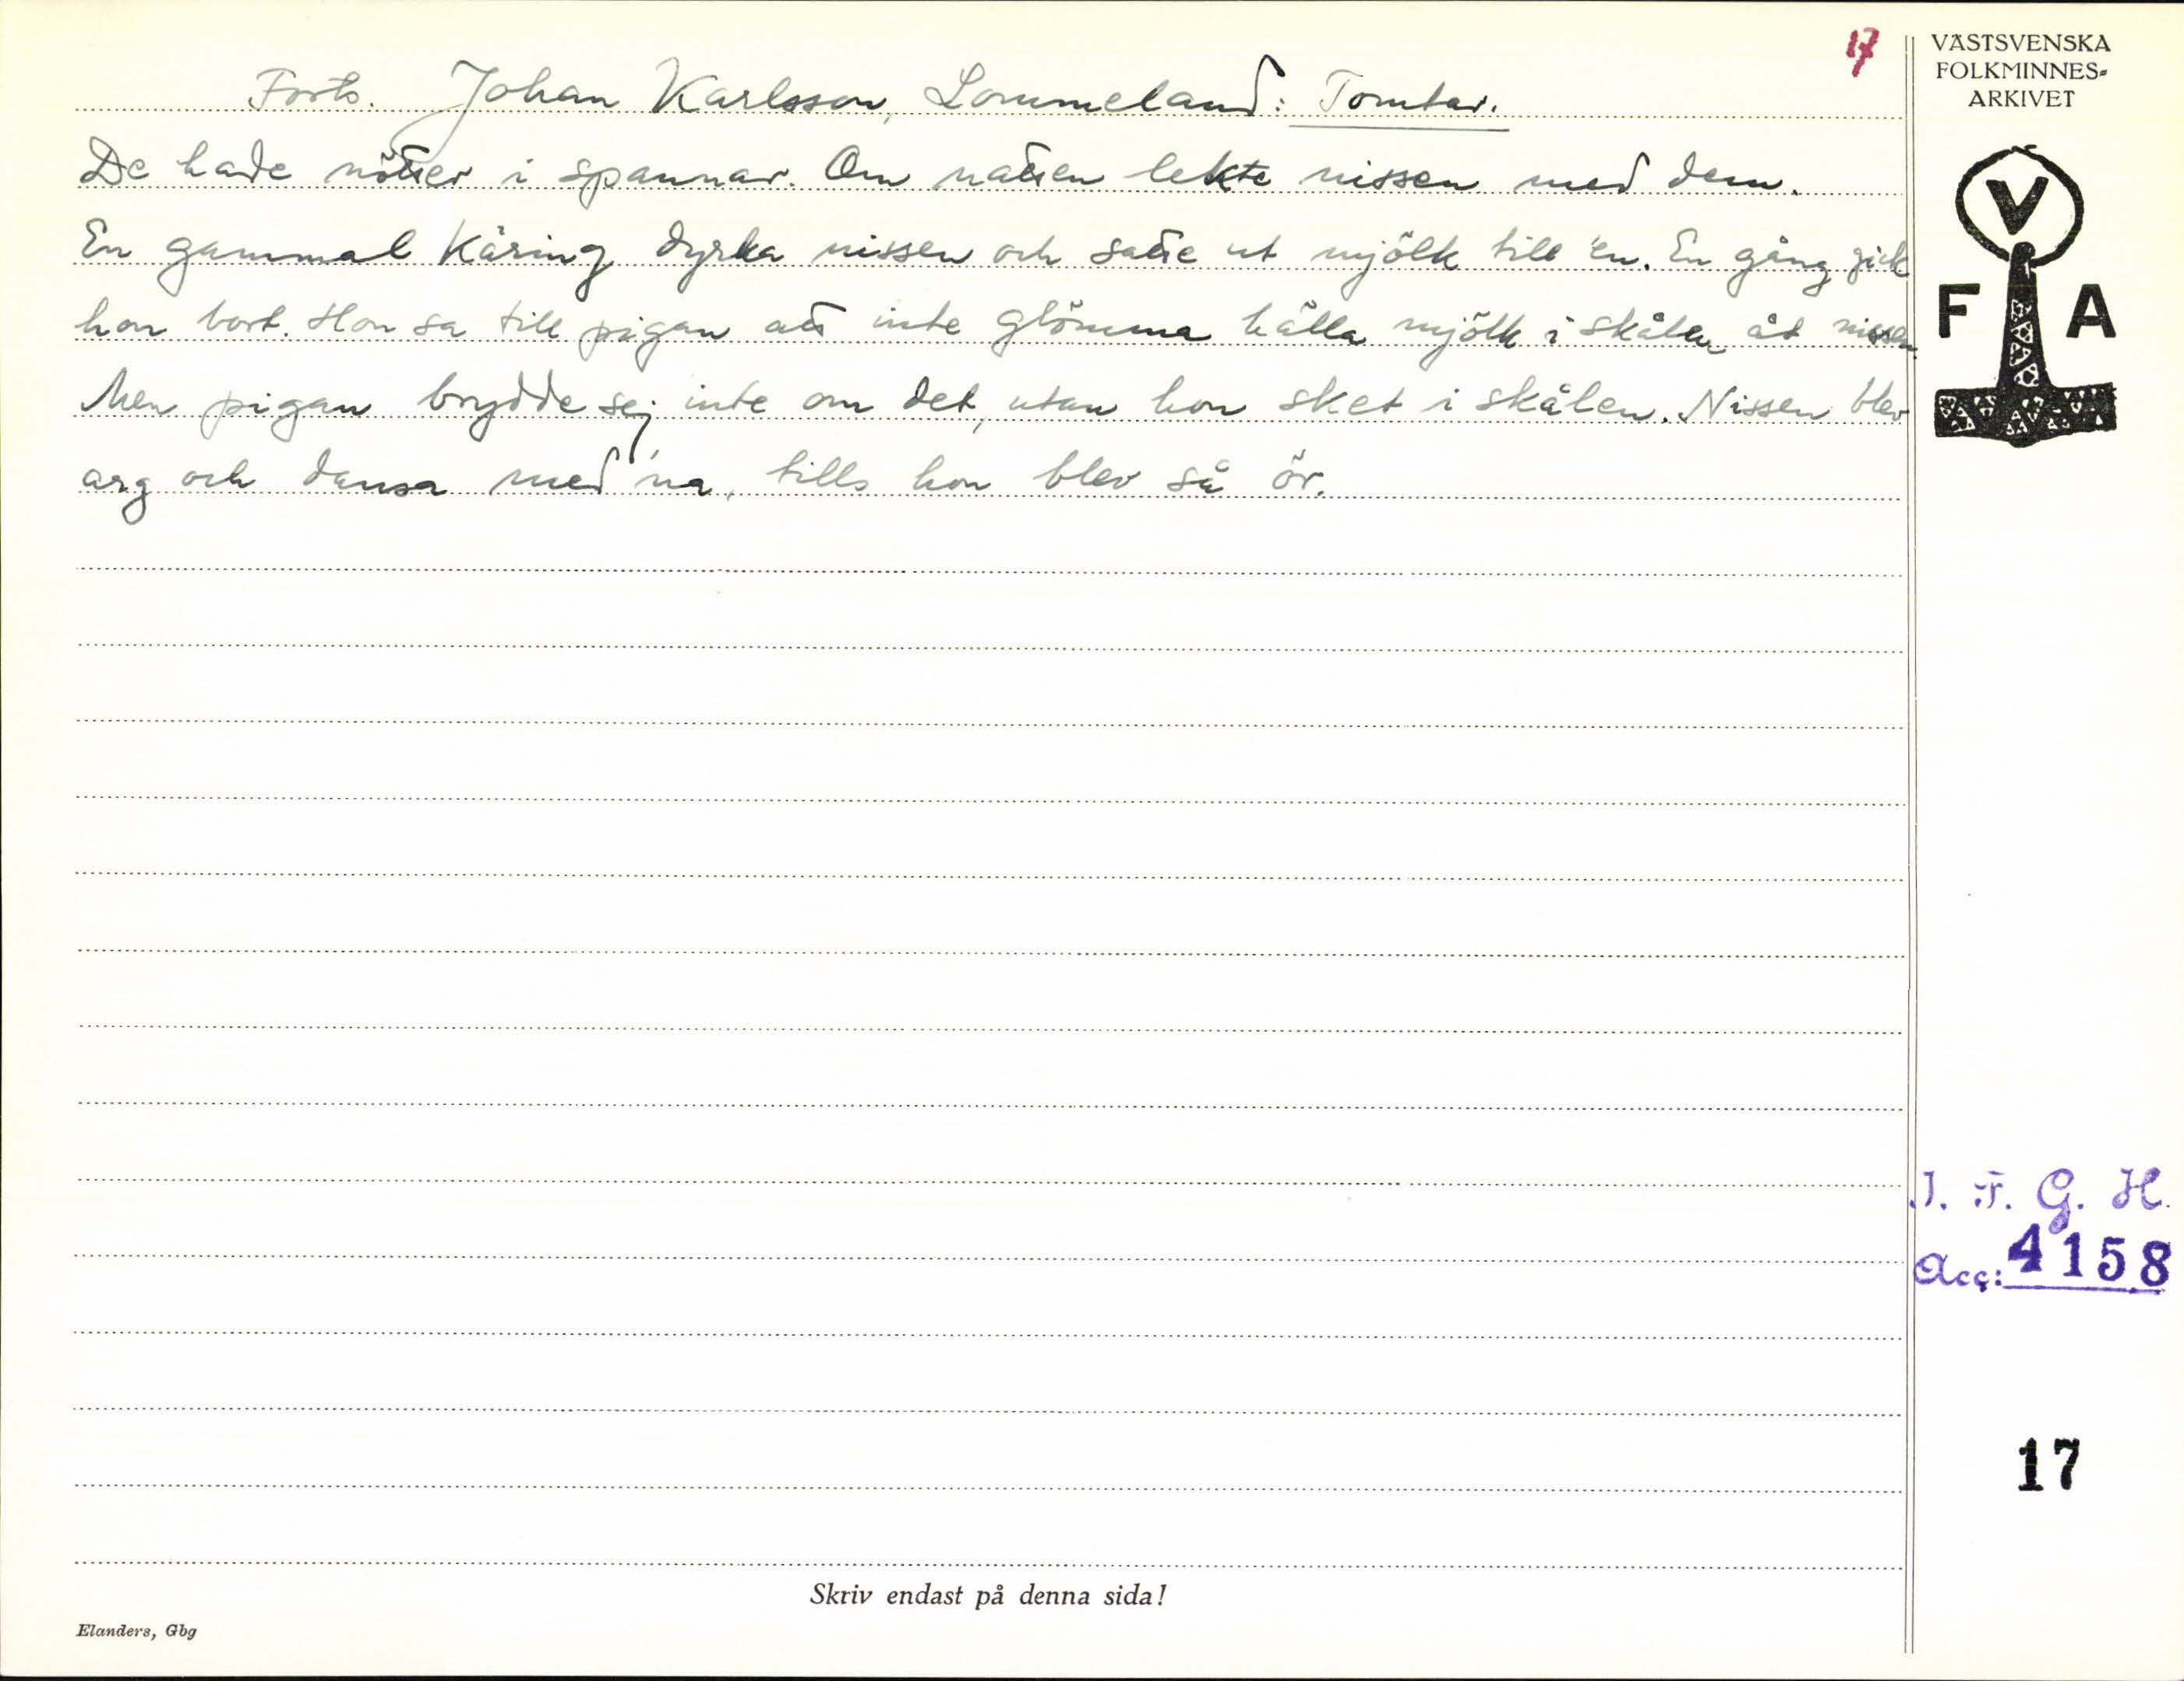 17
Forts. Johan Karlsson, Lommeland: Tomtar.
De hade nötter i spannar. Om natten lekte nissen med dem.
En gammal käring dyrka nissen och satte ut mjölk till 'en. En gång gick
hon bort. Hon sa till pigan att inte glömma hälla mjölk i skålen åt nissen.
Men pigan brydde sej inte om det, utan hon sket i skålen. Nissen blev
arg och dansa med 'na, tills hon blev så ör.
VÄSTSVENSKA
FOLKMINNES-
ARKIVET
V
F A
I. F. G. H.
Acc: 4158
17
Skriv endast på denna sida!
Elanders, Gbg